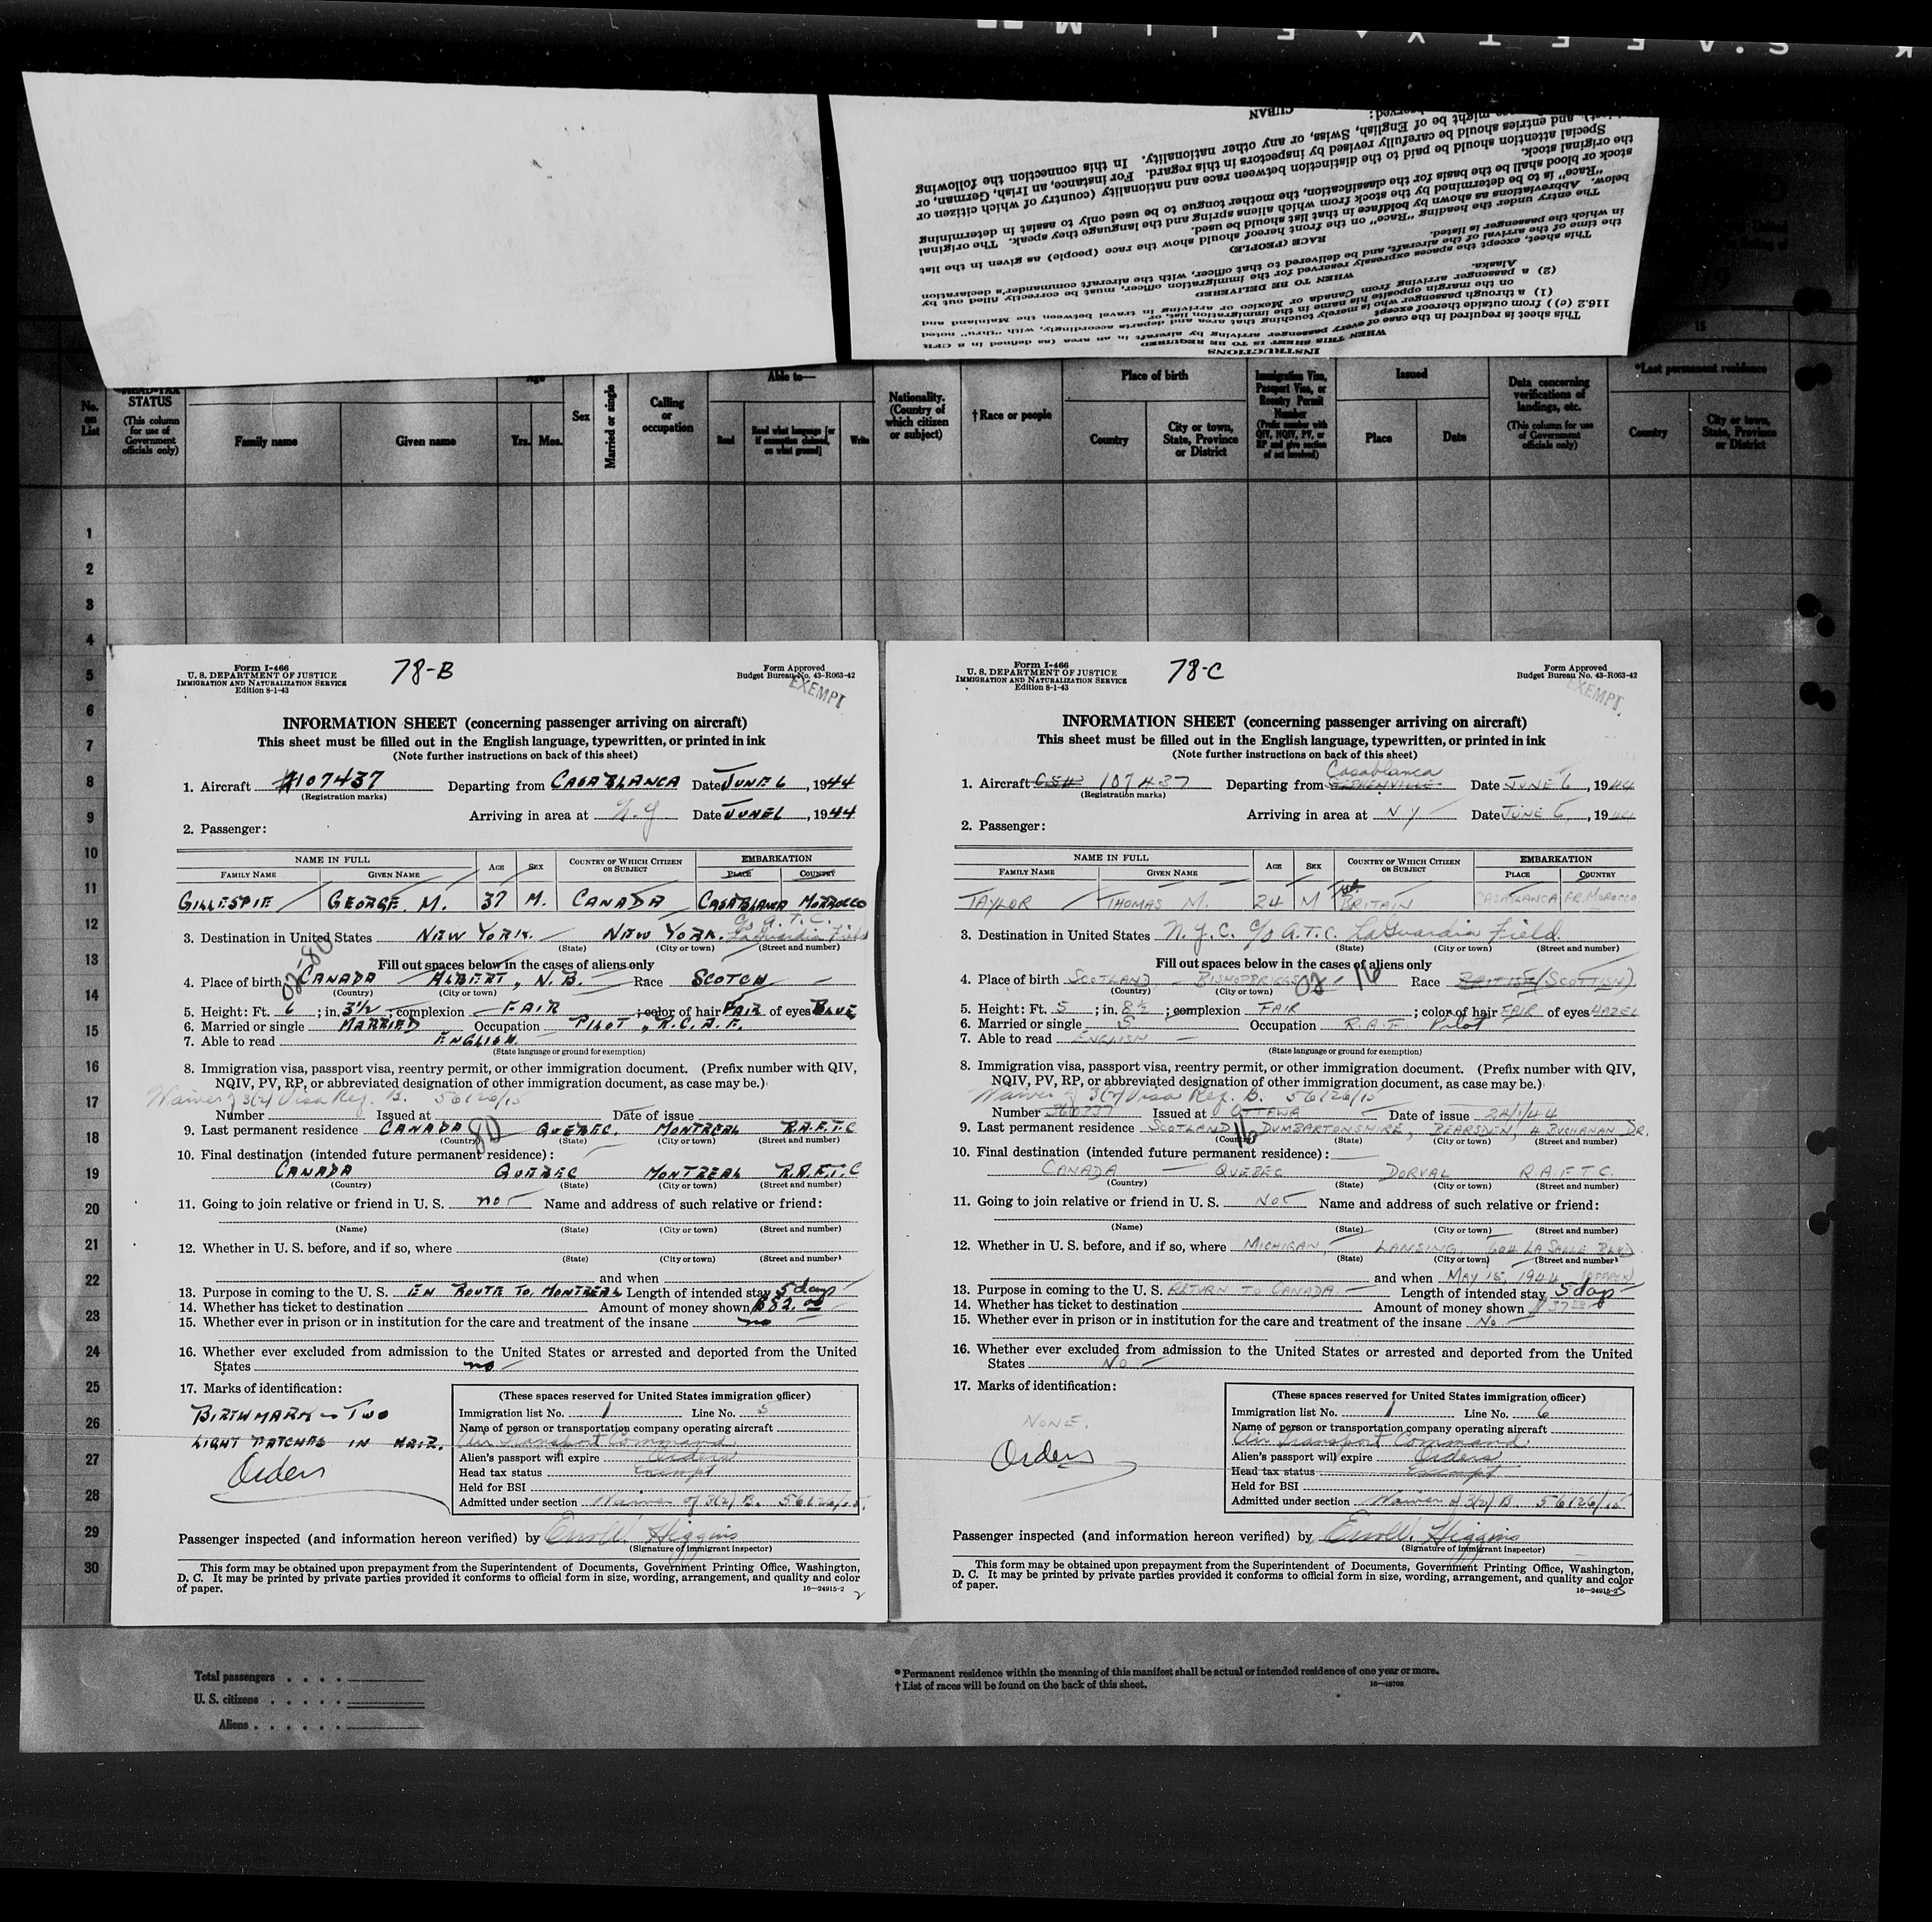 INSTRUCTIONS
WHEN THIS SHEET IS TO BE REQUIRED
This sheet is required in the case of every passenger arriving by aircraft in an area (as defined in 8 CFR
116.2 (c)) from outside thereof except
(1) a through passenger who is merely touching that area and departs accordingly, with "thru" noted
on the margin opposite his name in the immigration list, or
(2) a passenger arriving from Canada or Mexico or arriving in travel between the Mainland and
Alaska.
WHEN TO BE DELIVERED
This sheet, except the spaces expressly reserved for the immigration officer, must be correctly filled out by
the time of the arrival of the aircraft, and be delivered to that officer, with the aircraft commander's declaration
in which the passenger is listed.
RACE (PEOPLE)
The entry under the heading "Race" on the front hereof should show the race (people) as given in the list
below. Abbreviations as shown by boldface in that list should be used.
"Race" is to be determined by the stock from which aliens spring and the language they speak. The original
stock or blood shall be the basis for the classification, the mother tongue to be used only to assist in determining
the original stock.
Special attention should be paid to the distinction between race and nationality (country of which citizen or
subject), and entries should be carefully revised by inspectors in this regard. For instance, an Irish, German, or
might be of English, Swiss, or any other nationality. In this connection the following
CUBAN
No. on List
STATUS
(This column for use of Government officials only)
Family name
Given name
Age
Yrs. Mos.
Sex
Married or single
Calling or occupation
Able to—
Read
Read what language [or if exemption claimed, on what ground]
Write
Nationality. (Country of which citizen or subject)
†Race or people
Place of birth
Country
City or town, State, Province or District
Immigration Visa, Passport Visa, or Reentry Permit Number
(Prefix number with QIV, NQIV, PV, or RP and give section of act involved)
Issued
Place
Date
15
Data concerning verifications of landings, etc.
(This column for use of Government officials only)
*Last permanent residence
Country
City or town, State, Province or District
1
2
3
4
5
6
7
8
9
10
11
12
13
14
15
16
17
18
19
20
21
22
23
24
25
26
27
28
29
30
Form I-466
U. S. DEPARTMENT OF JUSTICE
IMMIGRATION AND NATURALIZATION SERVICE
Edition 8-1-43
78-B
Form Approved
Budget Bureau No. 43-R063-42
EXEMPT
INFORMATION SHEET (concerning passenger arriving on aircraft)
This sheet must be filled out in the English language, typewritten, or printed in ink
(Note further instructions on back of this sheet)
1. Aircraft 107437 Departing from CASABLANCA Date JUNE 6, 1944
(Registration marks)
Arriving in area at N.Y. Date JUNE 6, 1944
2. Passenger:
NAME IN FULL AGE SEX COUNTRY OF WHICH CITIZEN OR SUBJECT EMBARKATION
FAMILY NAME GIVEN NAME PLACE COUNTRY
GILLESPIE GEORGE. M. 37 M. CANADA CASABLANCA MORROCCO
c/o A.T.C.
3. Destination in United States NEW YORK. NEW YORK. LaGuardia Field
(State) (City or town) (Street and number)
02-80
Fill out spaces below in the cases of aliens only
4. Place of birth CANADA ALBERT, N.B. Race SCOTCH
(Country) (City or town)
5. Height: Ft. 6; in. 3½; complexion FAIR; color of hair FAIR of eyes BLUE
6. Married or single MARRIED Occupation PILOT, R.C.A.F.
7. Able to read ENGLISH.
(State language or ground for exemption)
8. Immigration visa, passport visa, reentry permit, or other immigration document. (Prefix number with QIV,
NQIV, PV, RP, or abbreviated designation of other immigration document, as case may be.)
Waiver of 3(2) Visa Reg. B. 56126/15
Number Issued at Date of issue
9. Last permanent residence CANADA QUEBEC. MONTREAL R.A.F.T.C
80
(Country) (State) (City or town) (Street and number)
10. Final destination (intended future permanent residence):
CANADA QUEBEC MONTREAL R.A.F.T.C
(Country) (State) (City or town) (Street and number)
11. Going to join relative or friend in U. S. no Name and address of such relative or friend:
(Name) (State) (City or town) (Street and number)
12. Whether in U. S. before, and if so, where
(State) (City or town) (Street and number)
and when
13. Purpose in coming to the U. S. EN ROUTE TO MONTREAL Length of intended stay 5 days
14. Whether has ticket to destination Amount of money shown $82.00
15. Whether ever in prison or in institution for the care and treatment of the insane no
16. Whether ever excluded from admission to the United States or arrested and deported from the United
States no
17. Marks of identification:
BIRTHMARK - TWO
LIGHT PATCHES IN HAIR.
Orders
(These spaces reserved for United States immigration officer)
Immigration list No. 1 Line No. 5
Name of person or transportation company operating aircraft
Air Transport Command
Alien's passport will expire Orders
Head tax status Exempt
Held for BSI
Admitted under section Waiver of 3(2) B. 56126/15.
Passenger inspected (and information hereon verified) by Higgins
(Signature of immigrant inspector)
This form may be obtained upon prepayment from the Superintendent of Documents, Government Printing Office, Washington,
D. C. It may be printed by private parties provided it conforms to official form in size, wording, arrangement, and quality and color
of paper.
16—24915-2
2
Form I-466
U. S. DEPARTMENT OF JUSTICE
IMMIGRATION AND NATURALIZATION SERVICE
Edition 8-1-43
78-C
Form Approved
Budget Bureau No. 43-R063-42
EXEMPT.
INFORMATION SHEET (concerning passenger arriving on aircraft)
This sheet must be filled out in the English language, typewritten, or printed in ink
(Note further instructions on back of this sheet)
Casablanca
1. Aircraft 107437 Departing from STEPHENVILLE Date JUNE 6, 1944
(Registration marks)
Arriving in area at NY Date JUNE 6, 1944
2. Passenger:
NAME IN FULL AGE SEX COUNTRY OF WHICH CITIZEN OR SUBJECT EMBARKATION
FAMILY NAME GIVEN NAME PLACE COUNTRY
TAYLOR THOMAS M. 24 M BRITAIN CASABLANCA FR. MOROCCO
3. Destination in United States N.Y.C. c/o A.T.C. LaGuardia Field.
(State) (City or town) (Street and number)
Fill out spaces below in the cases of aliens only
4. Place of birth SCOTLAND - BISHOPBRIGGS 02-16 Race BRITISH (SCOTTISH)
(Country) (City or town)
5. Height: Ft. 5; in. 8½; complexion FAIR; color of hair FAIR of eyes HAZEL
6. Married or single S Occupation R.A.F. Pilot
7. Able to read ENGLISH
(State language or ground for exemption)
8. Immigration visa, passport visa, reentry permit, or other immigration document. (Prefix number with QIV,
NQIV, PV, RP, or abbreviated designation of other immigration document, as case may be.)
Waiver of 3(2) Visa Reg. B. 56126/15
Number Issued at OTTAWA Date of issue 24/1/44
9. Last permanent residence SCOTLAND, DUMBARTONSHIRE, BEARSDEN, 4 BUCHANAN DR.
16
(Country) (State) (City or town) (Street and number)
10. Final destination (intended future permanent residence):
CANADA QUEBEC DORVAL R.A.F.T.C.
(Country) (State) (City or town) (Street and number)
11. Going to join relative or friend in U. S. NO Name and address of such relative or friend:
(Name) (State) (City or town) (Street and number)
12. Whether in U. S. before, and if so, where MICHIGAN, LANSING, LA SALLE BLVD.
(State) (City or town) (Street and number)
and when MAY 15, 1944 (APPROX)
13. Purpose in coming to the U. S. RETURN TO CANADA Length of intended stay 5 days
14. Whether has ticket to destination Amount of money shown $37
15. Whether ever in prison or in institution for the care and treatment of the insane No
16. Whether ever excluded from admission to the United States or arrested and deported from the United
States No
17. Marks of identification:
NONE.
Orders
(These spaces reserved for United States immigration officer)
Immigration list No. 1 Line No. 6
Name of person or transportation company operating aircraft
Air Transport Command
Alien's passport will expire Orders
Head tax status Exempt
Held for BSI
Admitted under section Waiver of 3(2) B. 56126/15
Passenger inspected (and information hereon verified) by Higgins
(Signature of immigrant inspector)
This form may be obtained upon prepayment from the Superintendent of Documents, Government Printing Office, Washington,
D. C. It may be printed by private parties provided it conforms to official form in size, wording, arrangement, and quality and color
of paper.
16—24915-2
3
Total passengers
U. S. citizens
Aliens
* Permanent residence within the meaning of this manifest shall be actual or intended residence of one year or more.
† List of races will be found on the back of this sheet.
16—18709